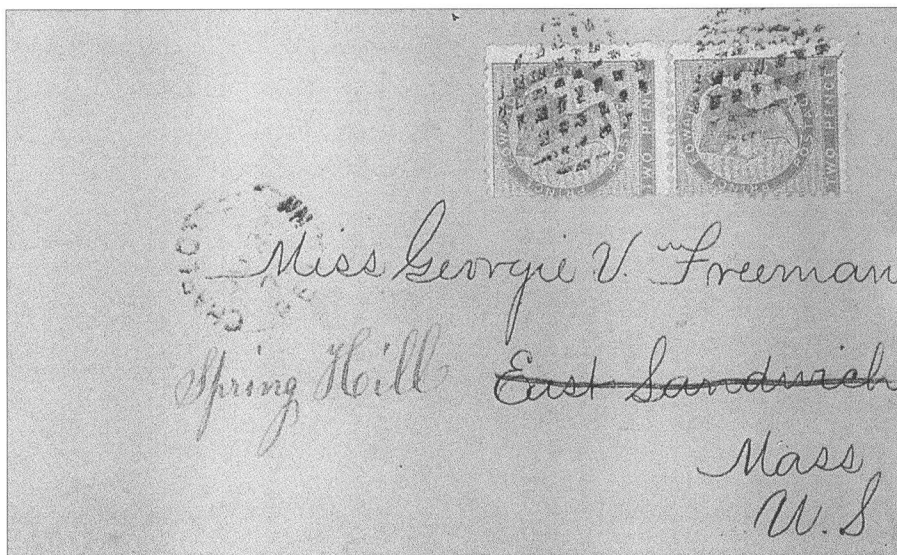 TWO PENCE
TWO PENCE
Miss Georgie V. Freeman
Spring Hill
East Sandwich
Mass
U.S